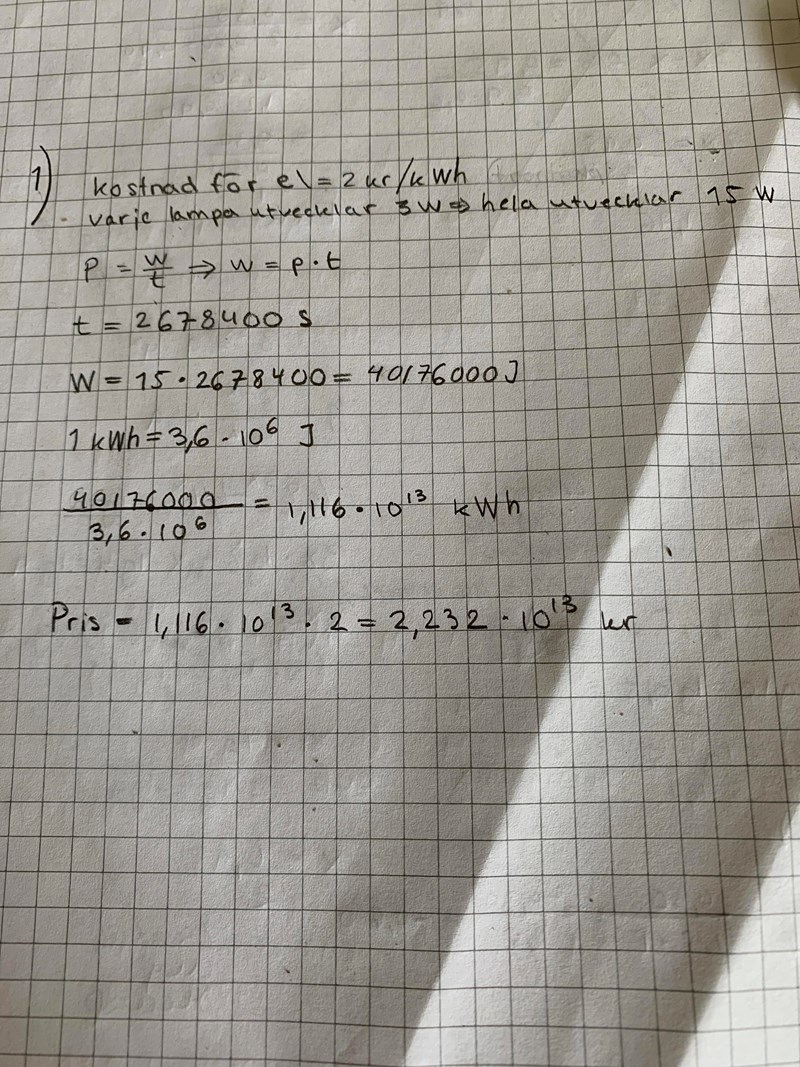 1)
kostnad för el = 2 kr/kWh
varje lampa utvecklar 3W => hela utvecklar 15 W
P = W/t => W = P · t
t = 2678400 s
W = 15 · 2678400 = 40176000 J
1 kWh = 3,6 · 10^6 J
40176000 / 3,6 · 10^6 = 1,116 · 10^13 kWh
Pris = 1,116 · 10^13 · 2 = 2,232 · 10^13 kr